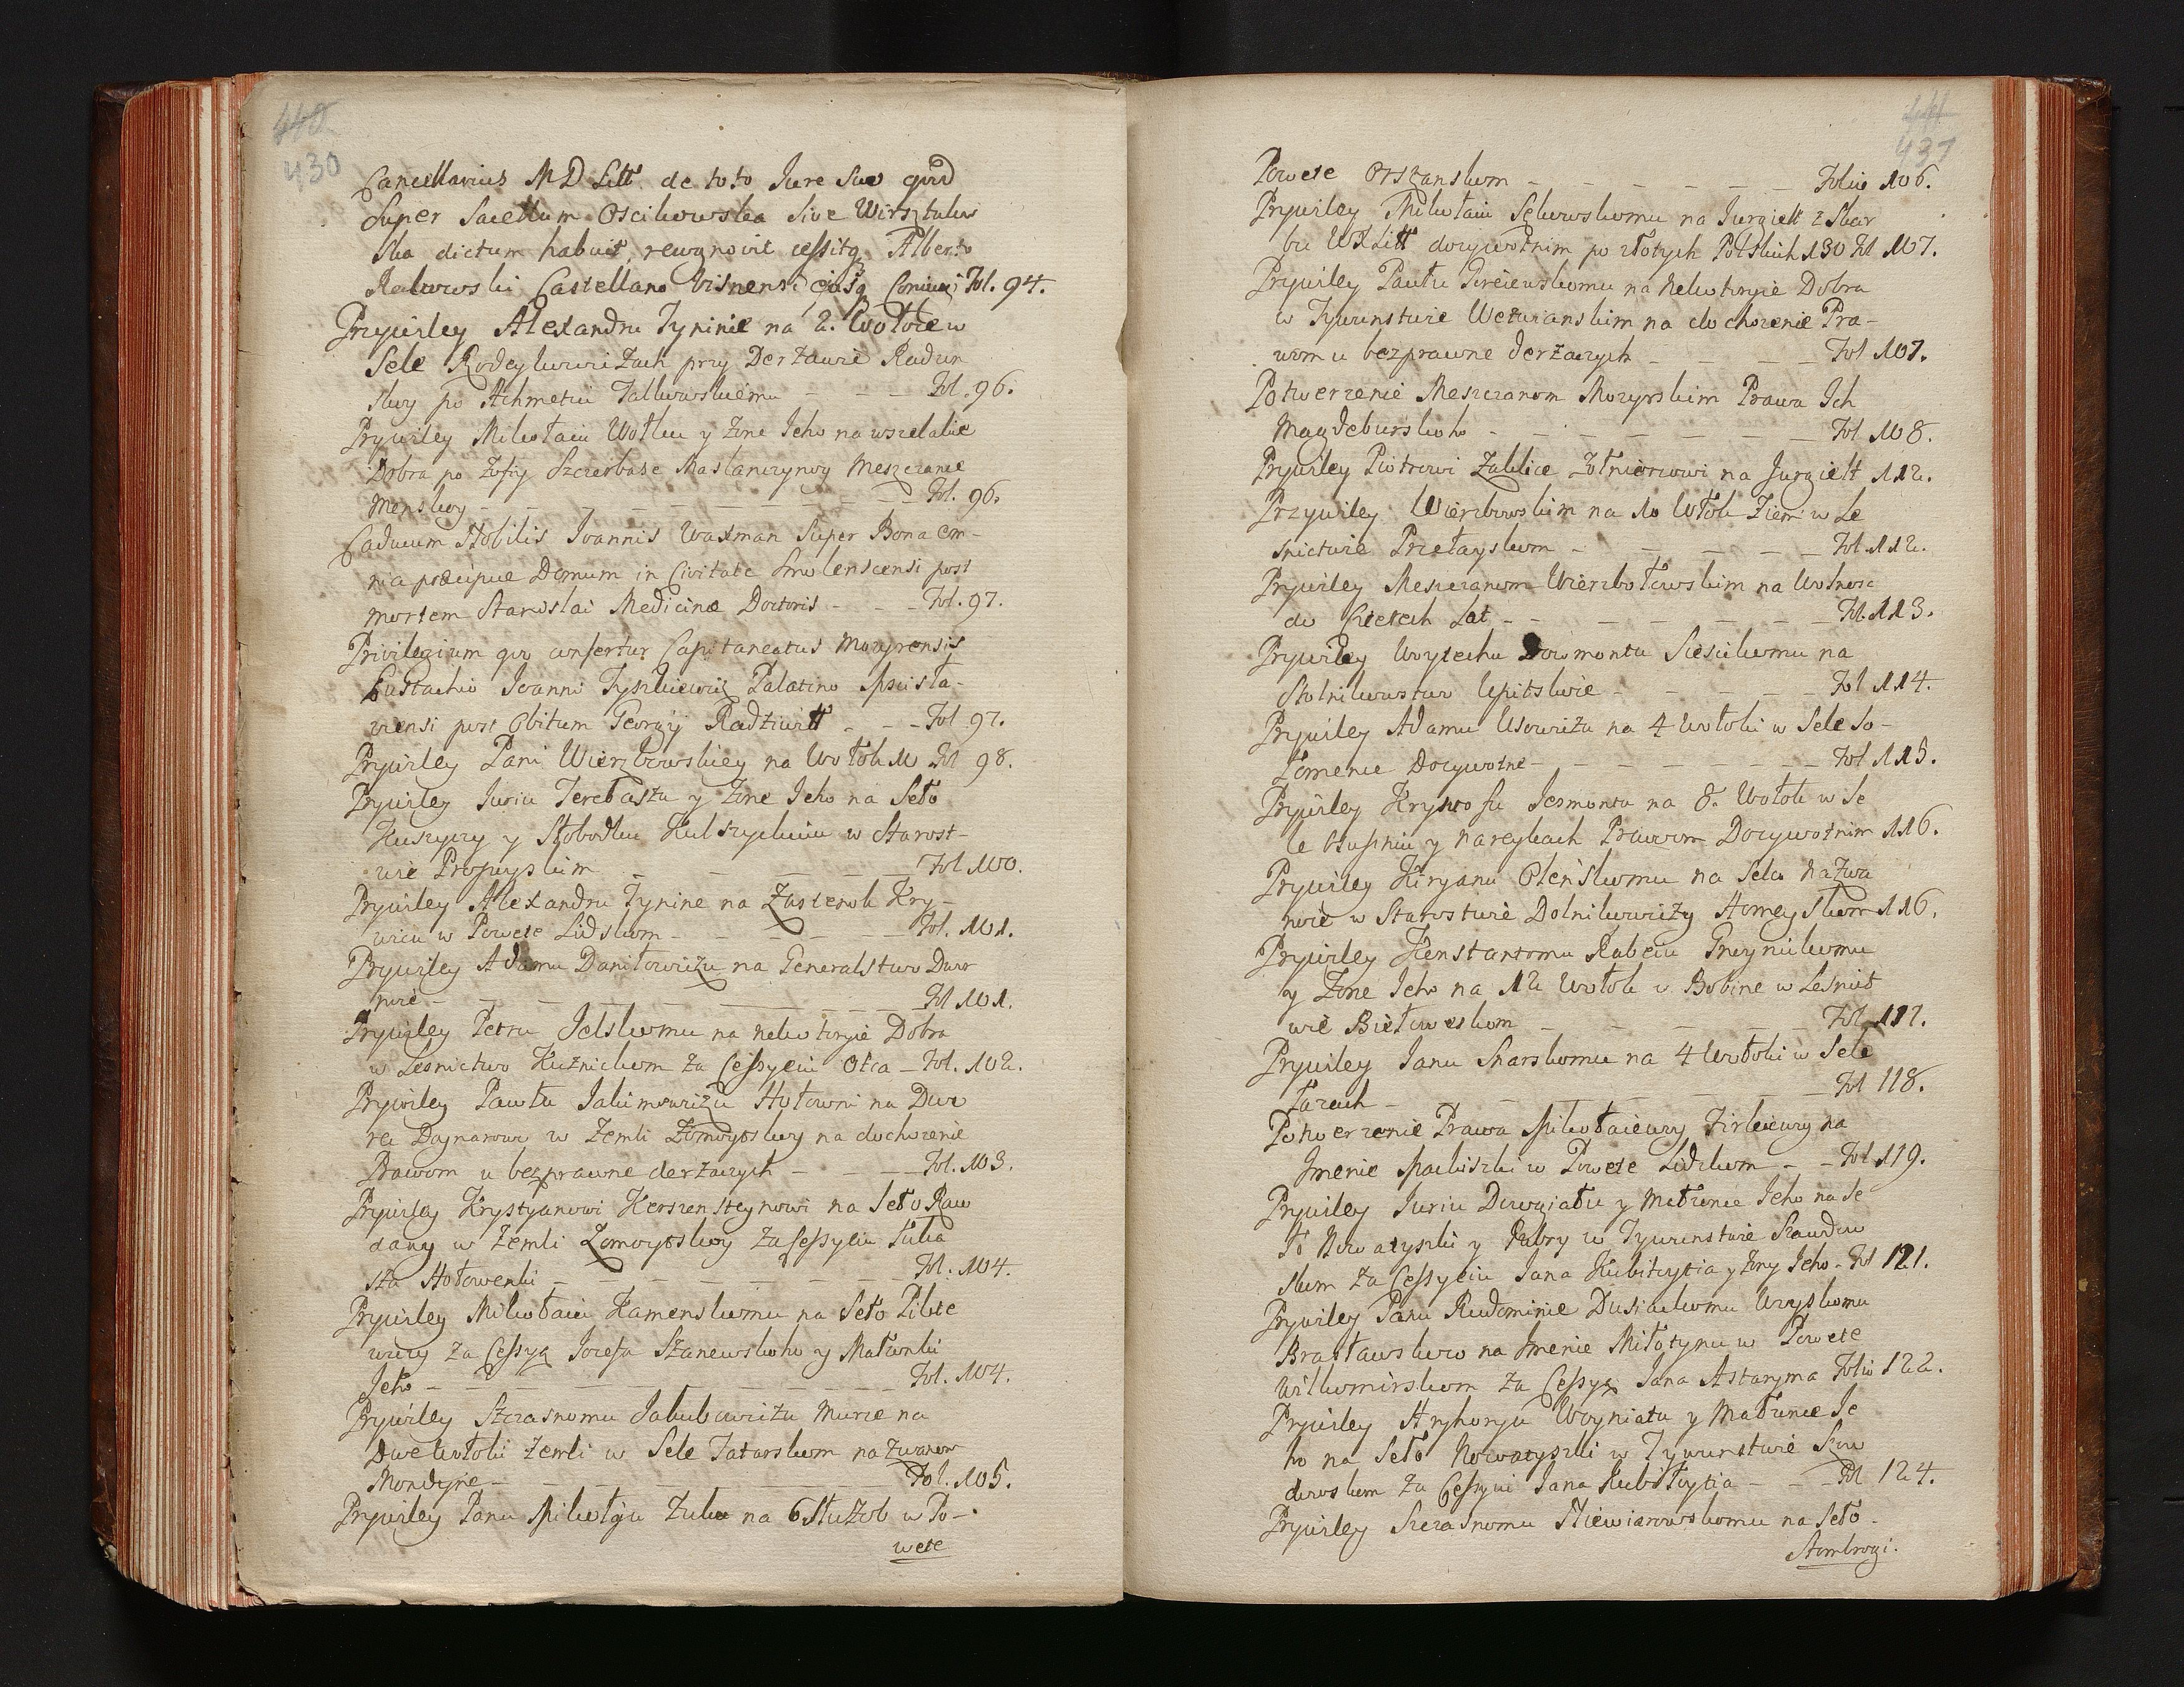 440
430
Cancellarius M D Litt. de toto Jure suo quod
Super Sacellum Oscikowska Sive Wirsztulow
ska dictum habuit, recognovit cessitq Alberto
Rakowski Castellano Visnensi ejusq Coniugi Fol. 94.
Przywiley Alexandru Tyninie na 2. Wołoce w
Sele Rodeykowiczach przy Derżawie Radun
skoy po Achmetiu Talkowskiemu - - - Fol. 96.
Prywiley Mikołaiu Wołku y żone Jeho na wszelakie
Dobra po Zofiy Szczerbase Maslanczynoy Meszczance
Menskoy - - - - - - - Fol. 96.
Caducum Nobilis Joannis Waxman Super Bona om-
nia præcipue Domum in Civitate Smolenscensi post
mortem Stanislai Medicinæ Doctoris - - - Fol. 97.
Privilegium quo confertur Capitaneatus Mozyrensis
Eustachio Joanni Tyszkiewicz Palatino Mscisła-
viensi post Obitum Georgij Radziwiłł - - - Fol 97.
Prywiley Pani Wierzbowskiey na Wołok 10 Fol 98.
Prywiley Juriu Terebaszu y żone Jeho na Seło
Kuszyczy y Słobodku Kulszyckuiu w Starost-
wie Propoyskim - - - - - Fol 100.
Prywiley Alexandru Tynine na Zastenok Kry-
wicu w Powete Lidskom - - - - - Fol. 101.
Prywiley Adamu Daniłowiczu na Generalstwo Dwor
noie - - - - - - - Fol 101.
Prywiley Petru Jelskomu na nekotoryie Dobra
w Lesnictwo Kuznickom za Cessyeiu Otca - Fol. 102.
Prywiley Pawłu Jakimowiczu Hołowni na Dwo
rec Dognarowo w Zemli Żomoytskoy na dochozenie
Prawom u bezprawne derżaczych - - - - Fol. 103.
Prywiley Krystyanowi Herszensteynowi na Seło Raw
dany w Zemli Żomoytskoy za Cessyeiu Łuka
sza Hołowenki - - - - - - - Fol. 104.
Prywiley Mikołaiu Kamenskomu na Seło Pilko
wiczy za Cessyą Jozefa Szanewskoho y Małonki
Jeho - - - - - - - Fol. 104.
Prywiley Szczasnomu Jakubowiczu Murze na
Dwe Wołoki Zemli w Sele Tatarskom nazwanom
Mondyne - - - - - - - Fol. 105.
Prywiley Panu Mikołaju Zuku na 6 Służob w Po-
wete
441
431
Powete Orszanskom - - - - - - Folio 106.
Prywiley Mikołaiu Sękowskomu na Jurgielt z Skar
bu WXLitt dozywotnim po złotych Polskich 130 Fol 107.
Prywiley Pawłu Jureiewskomu na Nekotoryie Dobra
w Tywunstwie Weturanskim na dochozenie Pra-
wom u bezprawne derżaczych - - - - Fol 107.
Potwerzenie Meszczanom Mozyrskim Prawa Ich
Magdeburskoho - - - - - - - Fol 108.
Prywiley Piotrowi Zablice Żołnierzowi na Jurgielt 112.
Przywiley Wierzbowskim na 10 Włok Ziemi w Le
snictwie Przełayskom - - - - - Fol 112.
Prywiley Meszczanom Wierzbołowskim na Wolnosc
do Czterech Lat - - - - - - - Fol. 113.
Prywiley Woytechu Dowmontu Siesickomu na
Stolnikowstwo Upitskoie - - - - - Fol 114.
Prywiley Adamu Usowiczu na 4 Wołoki w Sele So-
łomence Dozywotne - - - - - - - Fol 115.
Prywiley Krysztofu Jesmontu na 8. Wołok w Se
le Osupniu y Nareykach Prawom Dozywotnim 116.
Prywiley Kiryanu Olenskomu na Selco Nazwa
noie w Starostwie Dolnikowiczy Homeyskom 116.
Prywiley Kenstantomu Rabeiu Preynickomu
y Żone Jeho na 12 Wołok v Bobine w Lesnict
wie Biełoweskom - - - - - Fol 117.
Prywiley Janu Snarskomu na 4 Wołoki w Sele
Łarcuch - - - - - - - Fol 118.
Potwerzenie Prawa Mikołaiewy Zirkiewy na
Imenie Mackiszki w Powete Lidzkom - - Fol 119.
Prywiley Juriu Dowgiału y Małzonce Jeho na Se
ło Nowatyszki y Putry w Tywunstwie Szawdow
skom za Cessyeiu Jana Kubitcytia y żony Jeho - Fol 121.
Prywiley Panu Rudominie Dusiackomu Woyskomu
Brasławskomu na Imenie Miłotynu w Powete
Wilkomirskom za Cessyą Jana Astaryma Folio 122.
Prywiley Hryhoryu Woyniatu y Małzonce Je
ho na Seło Nowatyszki w Tywunstwie Szaw
dowskom za Cessyeiu Jana Kubitcytia - - - Fol 124.
Prywiley Szczasnomu Niewiarowskomu na Seło
Stombrogi.